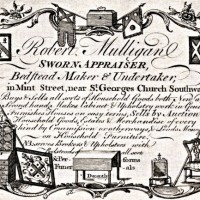 Robert Mulligan
SWORN APPRAISER,
Bedstead Maker & Undertaker,
in Mint Street, near St. Georges Church Southw
Buys & Sells all sorts of Household Goods both New
Second hand, Makes Cabinet & Upholstery work in
Furnishes Houses on easy terms, Sells by Auction
Household Goods, Estates & Merchandise of every
kind by Commission or otherways, & Lends
Household Furniture.
Serves Brokers & Upholsters with
& Per
Funer
Decently
forms
als